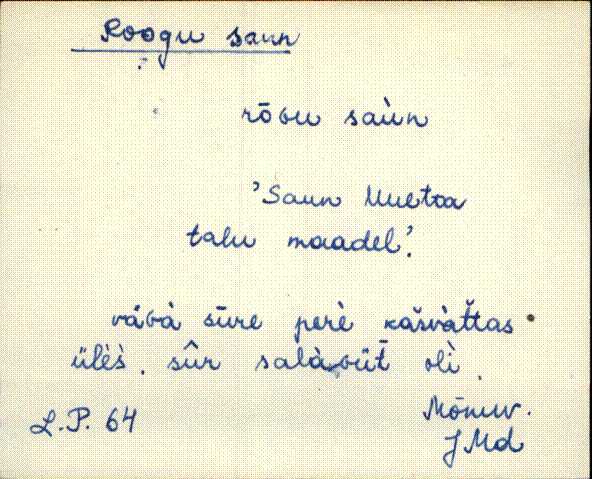 Roogu saun
rōɢu saùn
'Saun Uuetoa
talu maadel'.
vásà sūre perè kašvàt̆tas
ülès. sûr salàvüt̄ olì.
L.P. 64
Mõniw.
JMd